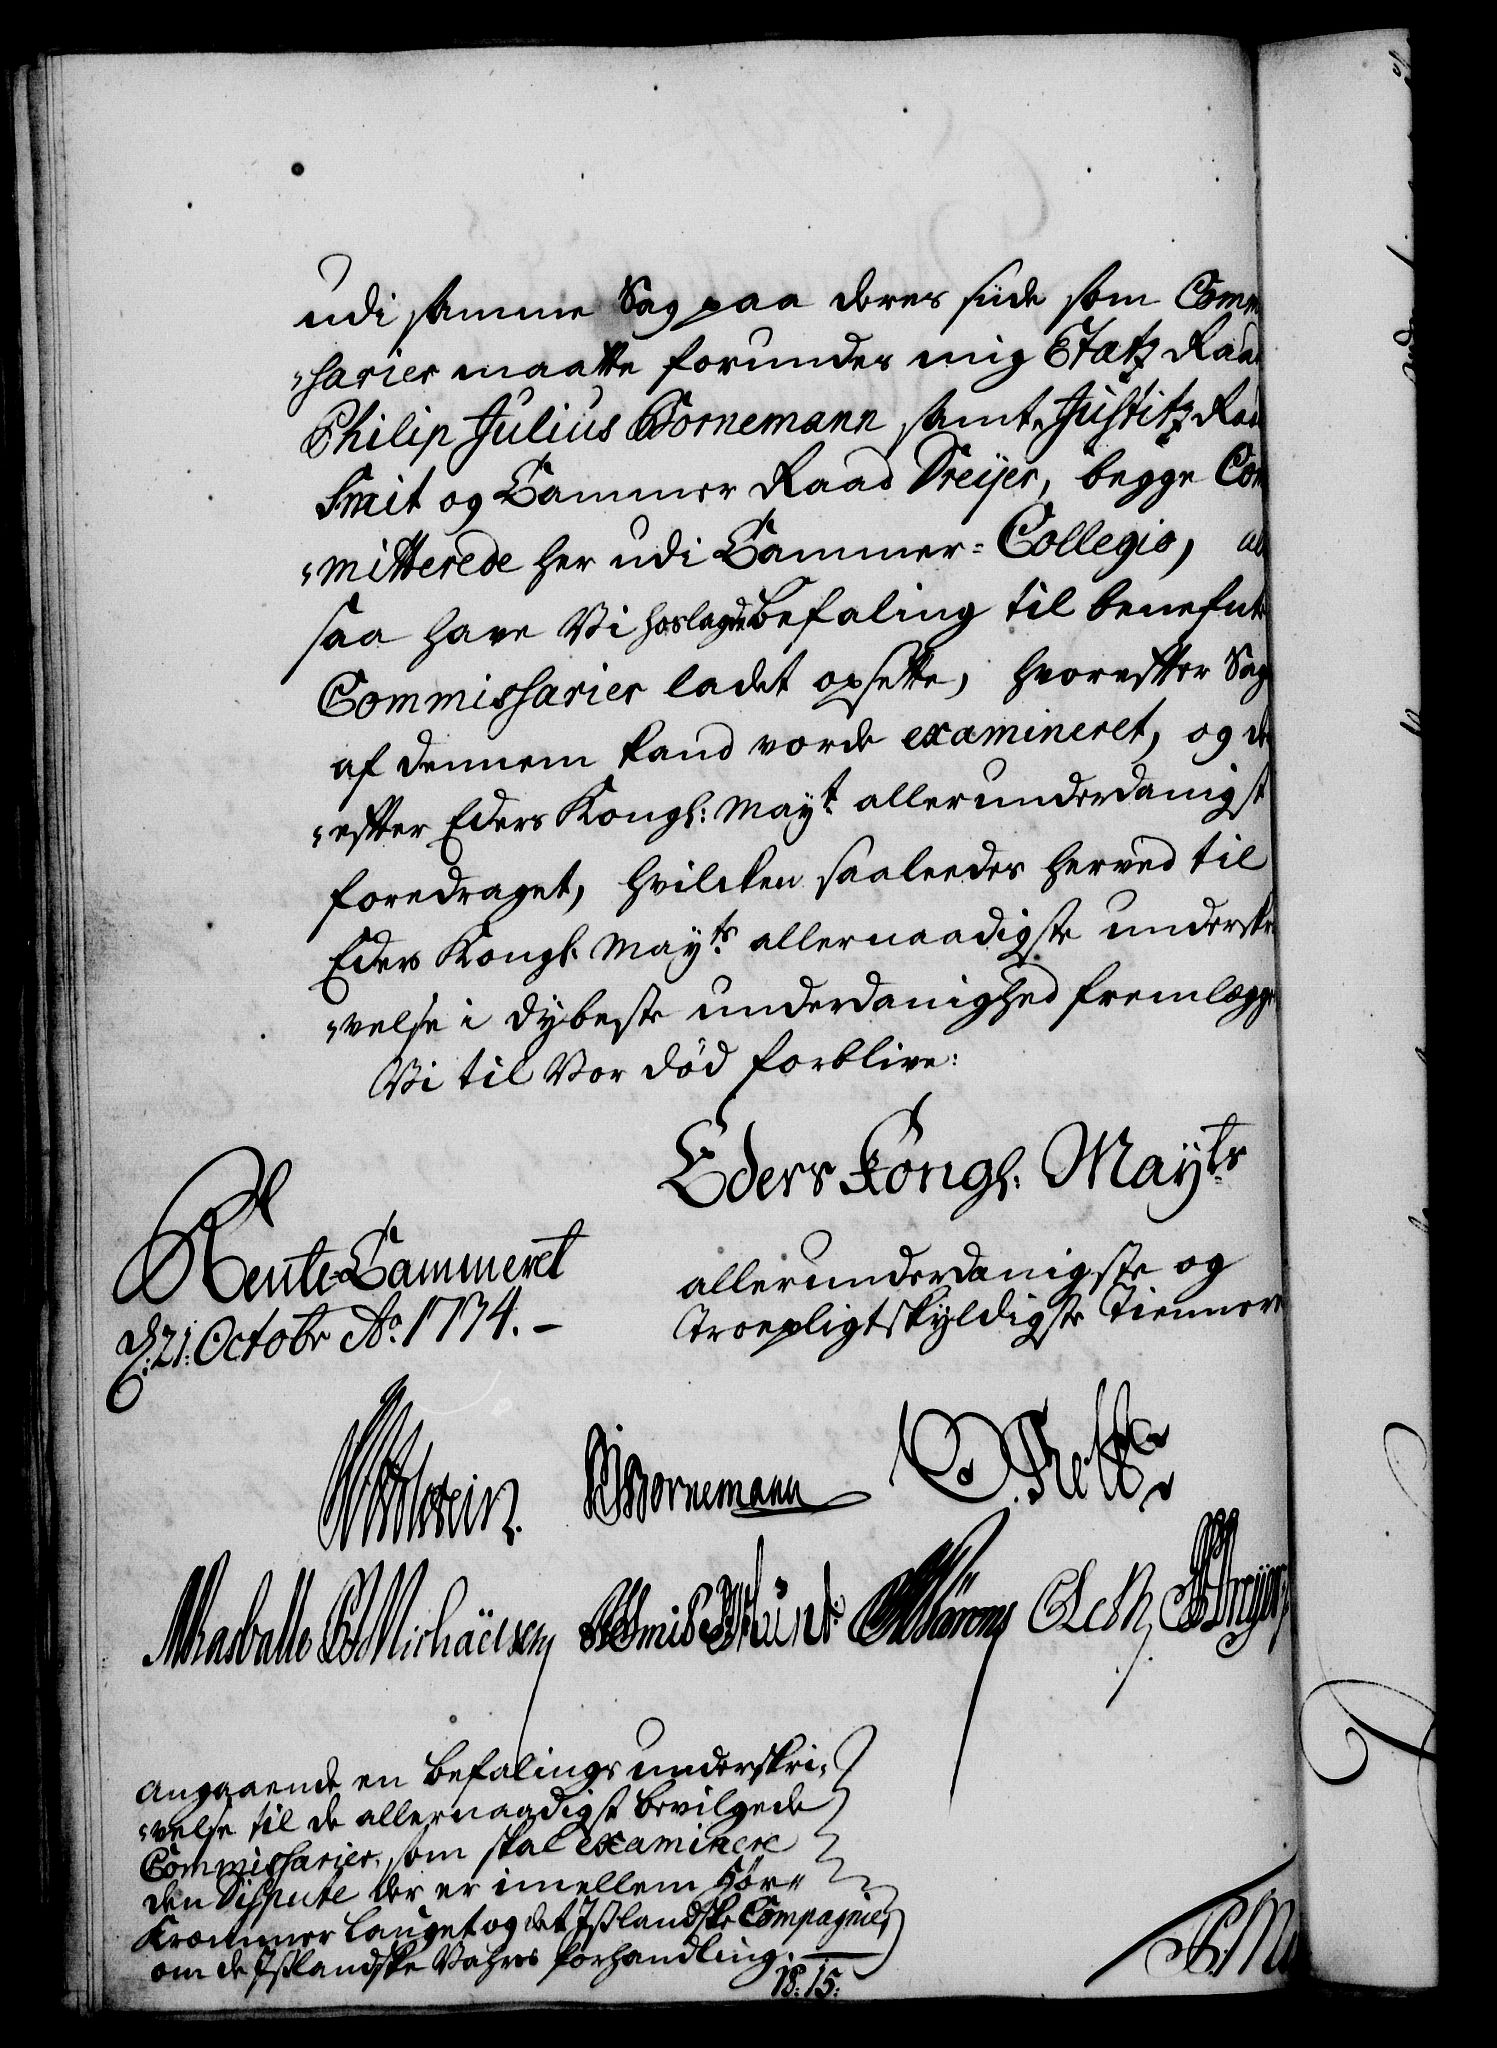 udi samme Sag paa deres siide som Comm
"sarier maatte forundes mig Etatz Raad
Philip Julius Bornemann samt Justitz Raa
Smit og Cammer Raad Dreijer, begge Com
"mitterede her udi Cammer-Collegio, al
saa have Vi hoslagde Befaling til benefnte
Commissarier ladet opsette, hvorefter Sag
af dennem kand vorde examineret, og de
"efter Eders Kongl: Mayt allerunderdanigst
foredraget, hvilcken saaleedes herved til
Eders Kongl. Mayts allernaadigste underskr
"velse i dybeste underdanighed fremlægge
Vi til Vor død forblive:
Eders Kongl: Mayts
Rente-Cammeret
d: 21: Octobr Ao. 1734. –
allerunderdanigste og
Troepligtskyldigste Tiennere
Bornemann
Michäelsen Smit CLeth Dreyer
Angaaende en Befalings underskri-
"velse til de allernaadigst bevilgede
Commissarier, som skal examinere
den Dispute der er imellem Hør-
Kræmmer Lauget og det Islandske Compagnie
om de Islandske Vahres forhandling.
18: 15: